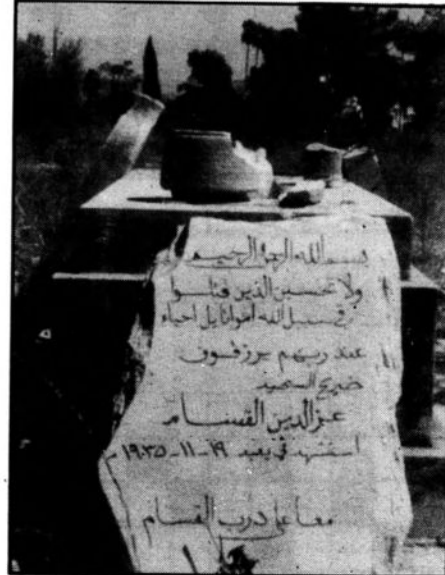 بسم الله الرحمن الرحيم
ولا تحسبن الذين قتلوا
في سبيل الله أمواتا بل أحياء
عند ربهم يرزقون
ضريح الشهيد
عز الدين القسام
استشهد في يعبد ١٩-١١-١٩٣٥م
معا على درب القسام